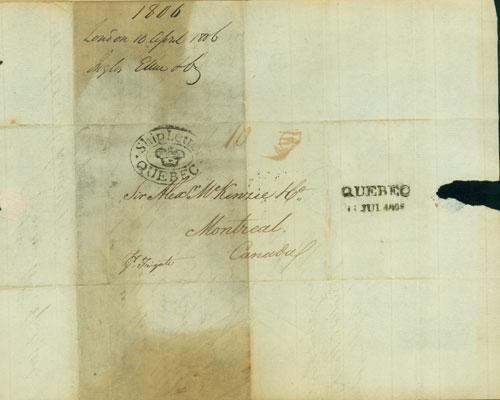 1806
London 10 April 1806
Inglis Ellice & Co
Ship Letter
QUEBEC
10
Sir Alexr McKenzie & Co.
Montreal.
Canada
QUEBEC
JUL